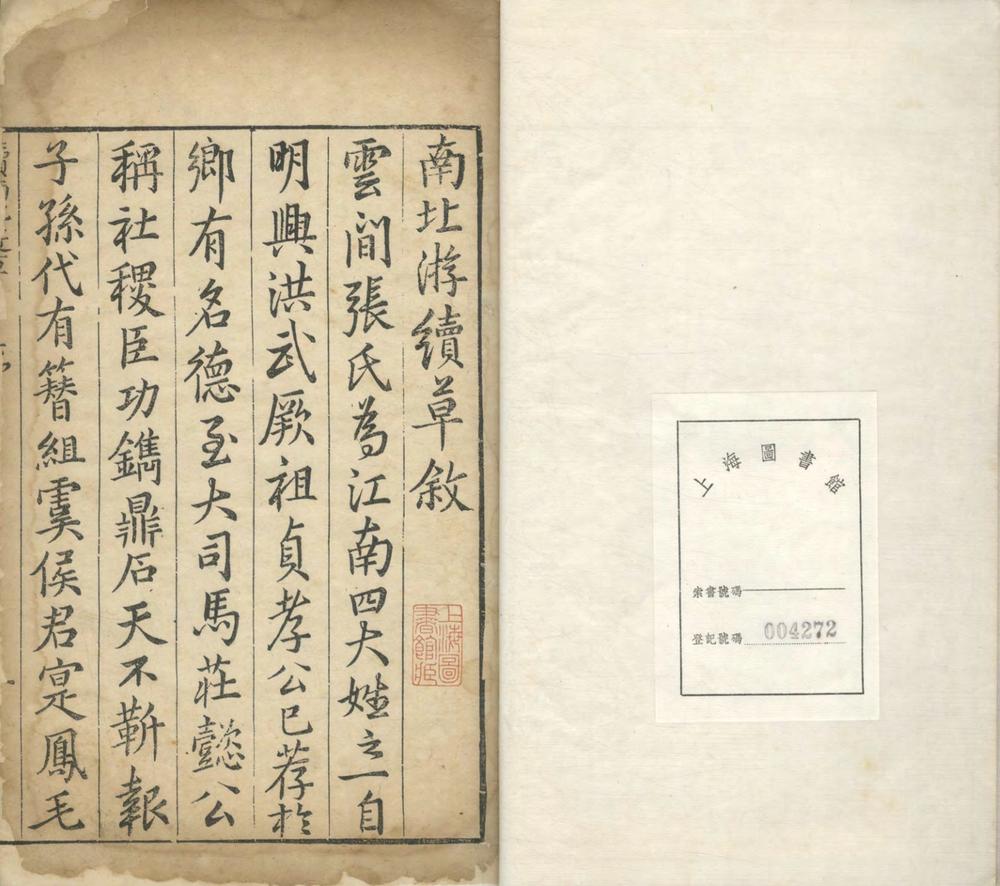 上海圖書館
索書號碼
登記號碼 004272
南北游續草敘
雲間張氏為江南四大姓之一自
明興洪武厥祖貞孝公已荐於
鄉有名德至大司馬莊懿公
稱社稷臣功鐫鼎石天不靳報
子孫代有簪組虞侯君寔鳳毛
上海圖書館藏